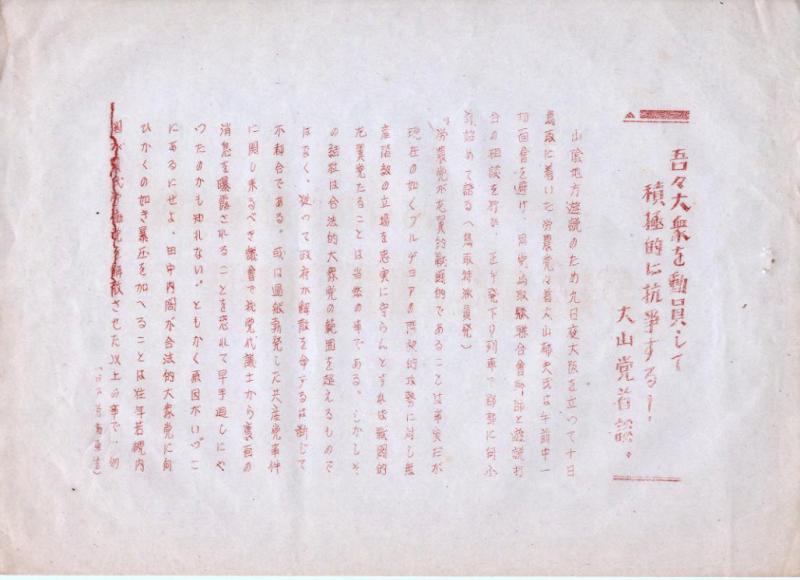 吾々大衆を動員して
積極的に抗争する!
大山党首談。
山陰地方遊説のため九日夜大阪を立つて十日
鳥取に着いた労農党々首大山郁夫氏は午前中一
切面會を避け、同党鳥取縣聯合會幹部と遊説打
合の相談を行ひ、正午発下り列車で
語る(鳥取特派員発)
労農党が左翼的戦闘的であることは事実だが
現在の如くブルヂョアの攻勢に対し無
産階級の立場を忠実に守らんとすれば戦闘的
左翼党たることは当然の事である。しかしそ
の結社は合法的大衆党の範囲を超えるもので
はなく、従つて政府が解散を命ずるは断じて
不都合である。或は過般勃発した共産党事件
に関し来るべき議會で我党代議士から裏面の
消息を曝露されることを恐れて早手廻しにや
つたのかも知れない。ともかく原因がいづこ
にあるにせよ、田中内閣が合法的大衆党に向
ひかくの如き暴圧を加へることは往年若槻内
解散させた以上の事で、